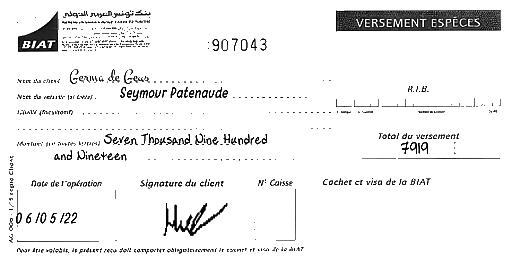 بنك تونس العربي الدولي
BIAT
:907043
VERSEMENT ESPÈCES
Nom du client Germa de Geus
Nom du remettant (si tiers) Seymour Patenaude
R.I.B.
Libellé (facultatif)
Montant (en toutes lettres) Seven Thousand Nine Hundred
and Nineteen
Total du versement
7919
Date de l'opération
Signature du client
N° Caisse
Cachet et visa de la BIAT
06/05/22
Pour être valable, le présent reçu doit comporter obligatoirement le cachet et visa de la BIAT